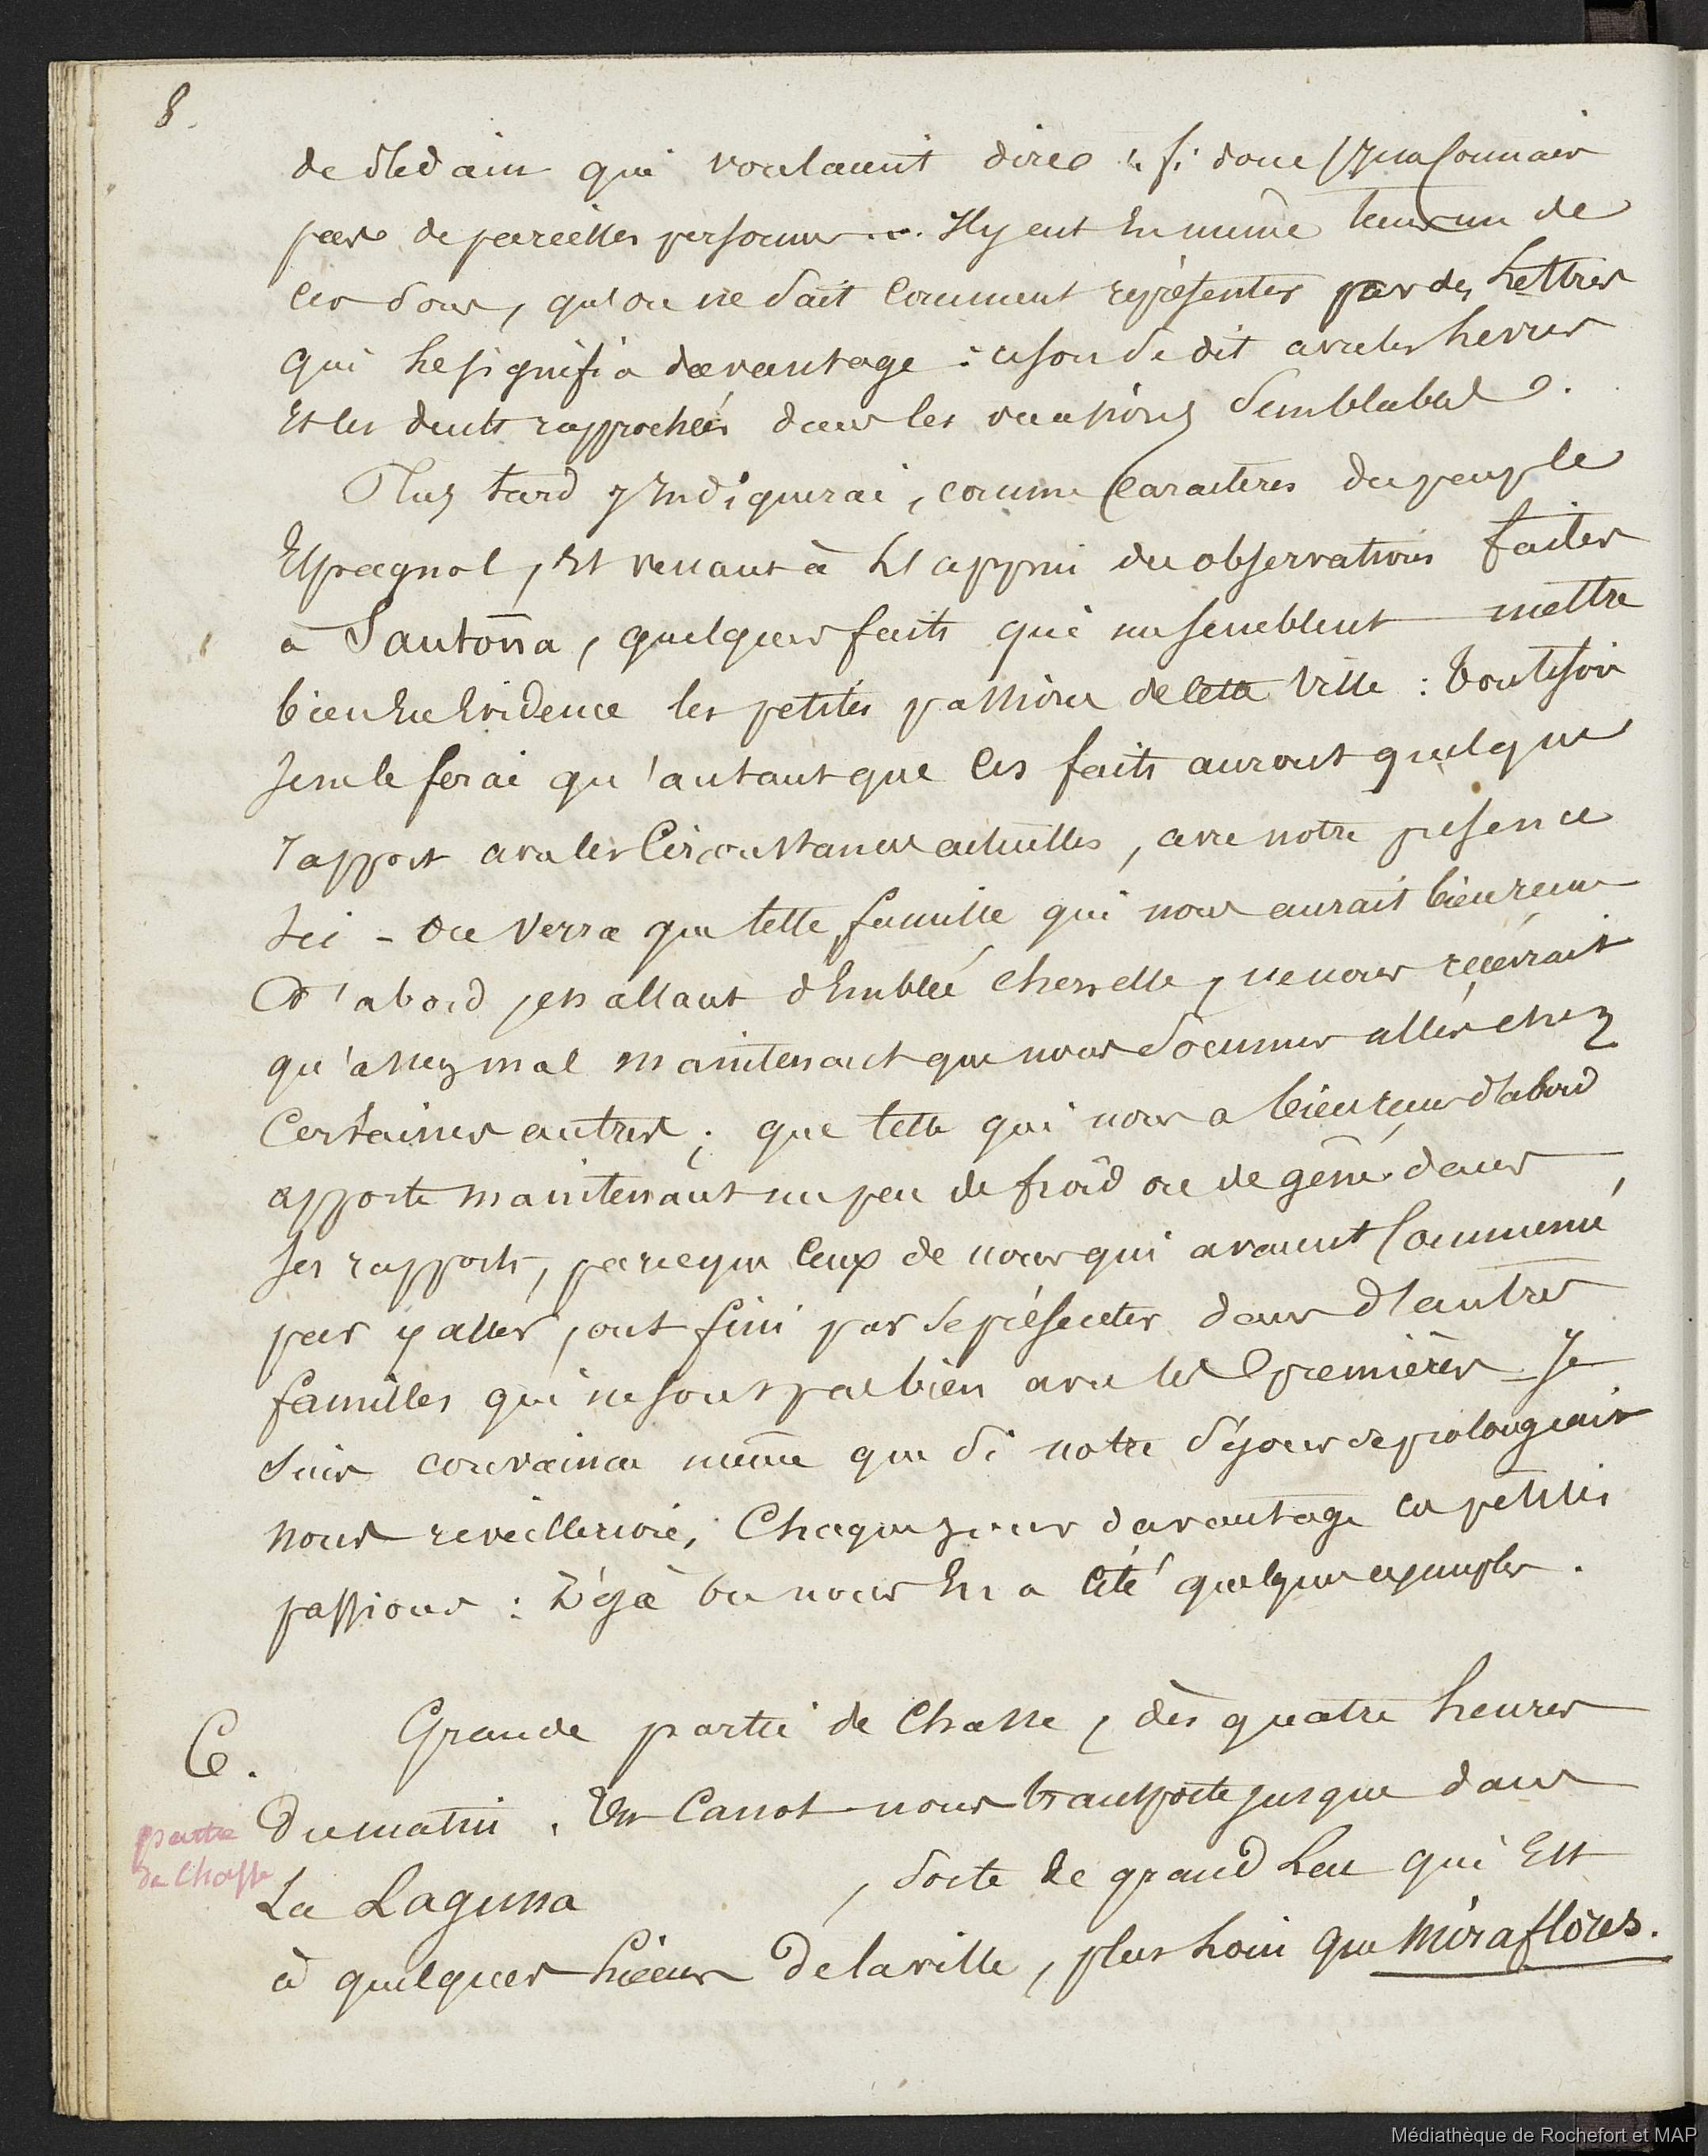 8.
de dédain qui voulaient dire : fi donc je ne connais
pas de pareilles personnes ... Il y eut en même tems un de
ces sons, qu'on ne sait comment représenter par des lettres
qui le signifia davantage : ce son se dit avec les levres
et les dents rapprochées dans les occasions semblables.
Plus tard j'indiquerai, comme caractères du peuple
Espagnol, et venant à l'appui des observations faites
à Santoña, quelques faits qui me semblent mettre
bien en evidence les petites passions de cette ville : toutefois
je ne le ferai qu'autant que ces faits auront quelque
rapport avec les circonstances actuelles, avec notre présence
ici - on verra que telle famille qui nous aurait bien reçu
d'abord, en allant d'emblée chez elle, ne nous recevrait
qu'assez mal maintenant que nous sommes allés chez
certaines autres ; que telle qui nous a bien reçus d'abord
apporte maintenant un peu de froid ou de gêne dans
ses rapports, parceque ceux de nous qui avaient commencé,
par y aller, ont fini par se présenter dans d'autres
familles qui ne sont pas bien avec les premières - Je
suis convaincu même que si notre séjour se prolongeait
nous reveillerions, chaque jour davantage ces petites
passions : déjà on nous en a cité quelques exemples.
6. Grande partie de chasse, dès quatre heures
du matin. Un canot nous transporte jusque dans
partie
de chasse
La Laguna , sorte de grand lac qui est
à quelques lieues de la ville, plus loin que Miraflores.
Médiathèque de Rochefort et MAP